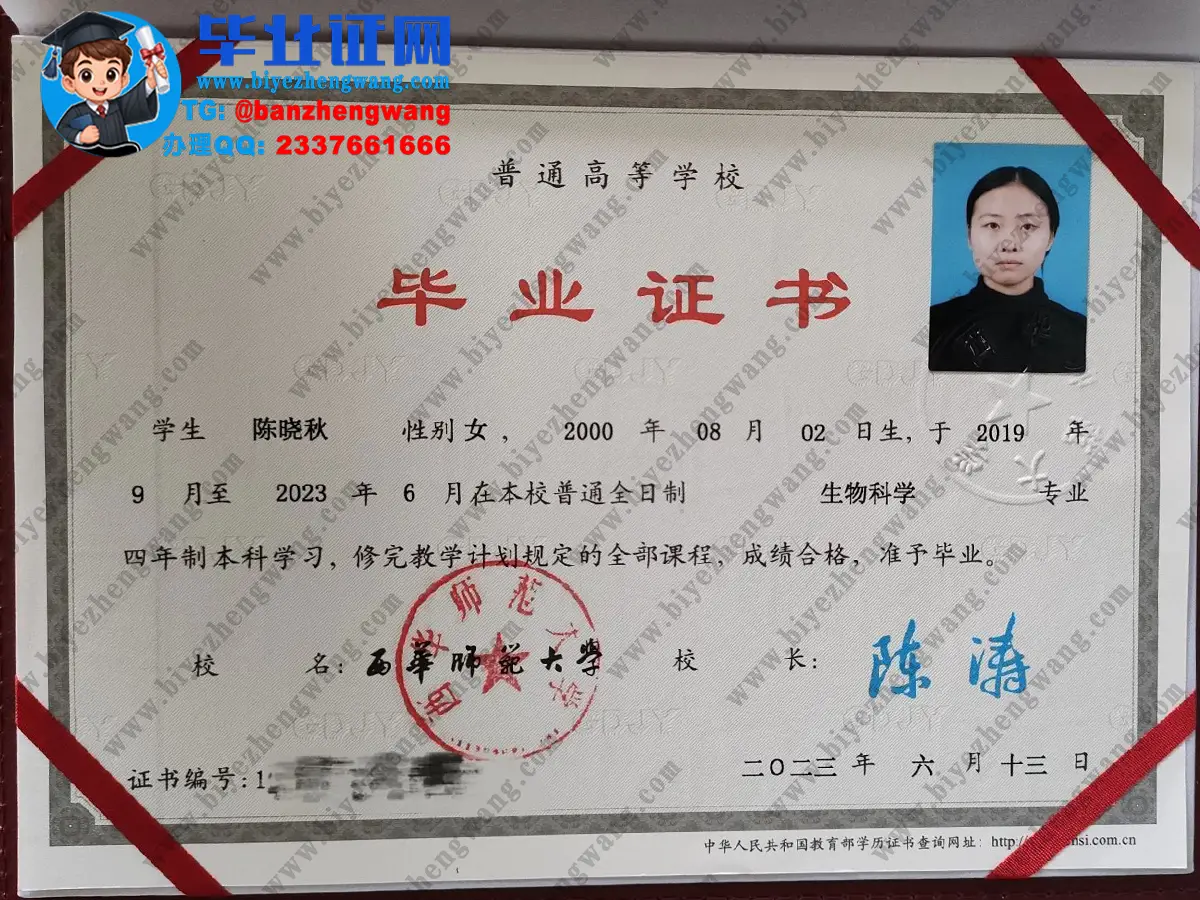 毕业证网
www.biyezhengwang.com
TG: @banzhengwang
办理QQ: 2337661666
普通高等学校
毕业证书
学生 陈晓秋 性别 女， 2000 年 08 月 02 日生，于 2019 年
9 月至 2023 年 6 月在本校普通全日制 生物科学 专业
四年制本科学习，修完教学计划规定的全部课程，成绩合格，准予毕业。
校 名：西华师范大学 校 长：陈涛
证书编号:1
二〇二三 年 六 月 十三 日
中华人民共和国教育部学历证书查询网址： http://
nsi.com.cn
西华师范大学
GDJY
www.biyezhengwang.com